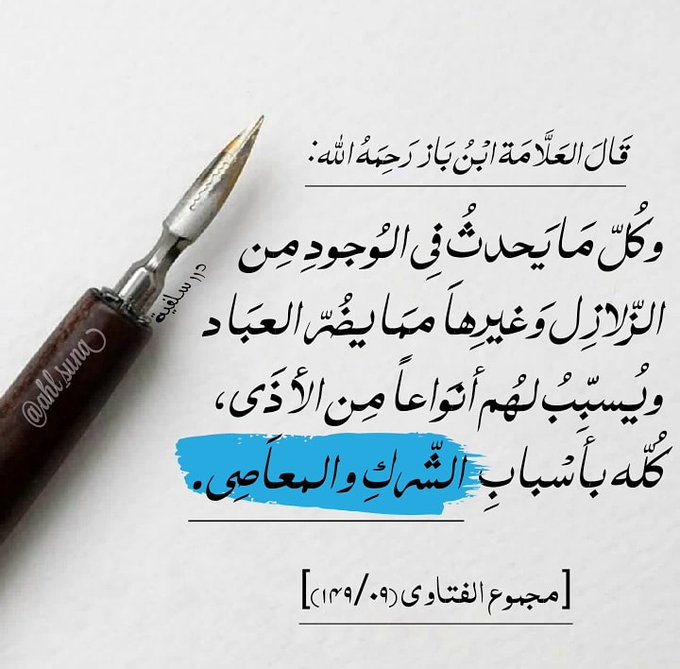 قَالَ العَلَّامَة ابْنُ بَاز رَحِمَهُ الله:
وكُلّ مَا يَحدثُ فِي الوُجودِ مِن
الزّلازِل وَغيرِهاَ ممَا يضُرّ العبَاد
ويُسبِّبُ لهُم أنوَاعاً مِن الأذَى،
كُلّه بأسْبابِ الشّركِ والمعاَصِي.
[مجموع الفتاوى (٠٩/ ١٤٩)]
درر سلفية
@ahl_suna